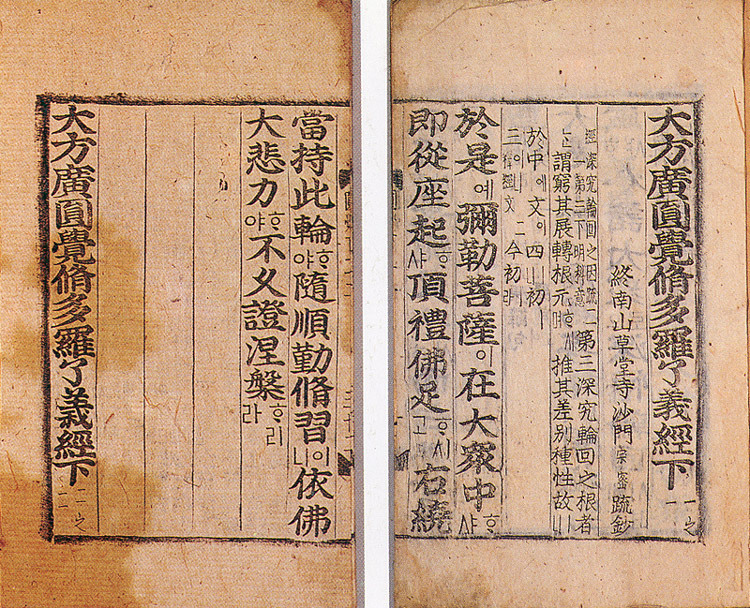 大方廣圎覺脩多羅了義經下 一之一
終南山草堂寺沙門宗密疏鈔
經深究輪回之因疏二
一第二下明科意
第三深究輪回之根者
謂窮其展轉根元ᄒᆞ시며推其差別種性故ㅣ니
於中에文이四ㅣ니初ㅣ
三이니 經文 二 今初라
於是예彌勒菩薩이在大衆中ᄒᆞ샤
即從座起ᄒᆞ샤頂禮佛足ᄒᆞ시고右繞
當持此輪ᄒᆞ야隨順勤脩習이니依佛
大悲力ᄒᆞ야不乆證涅槃ᄒᆞ리라
大方廣圎覺脩多羅了義經下 二之二